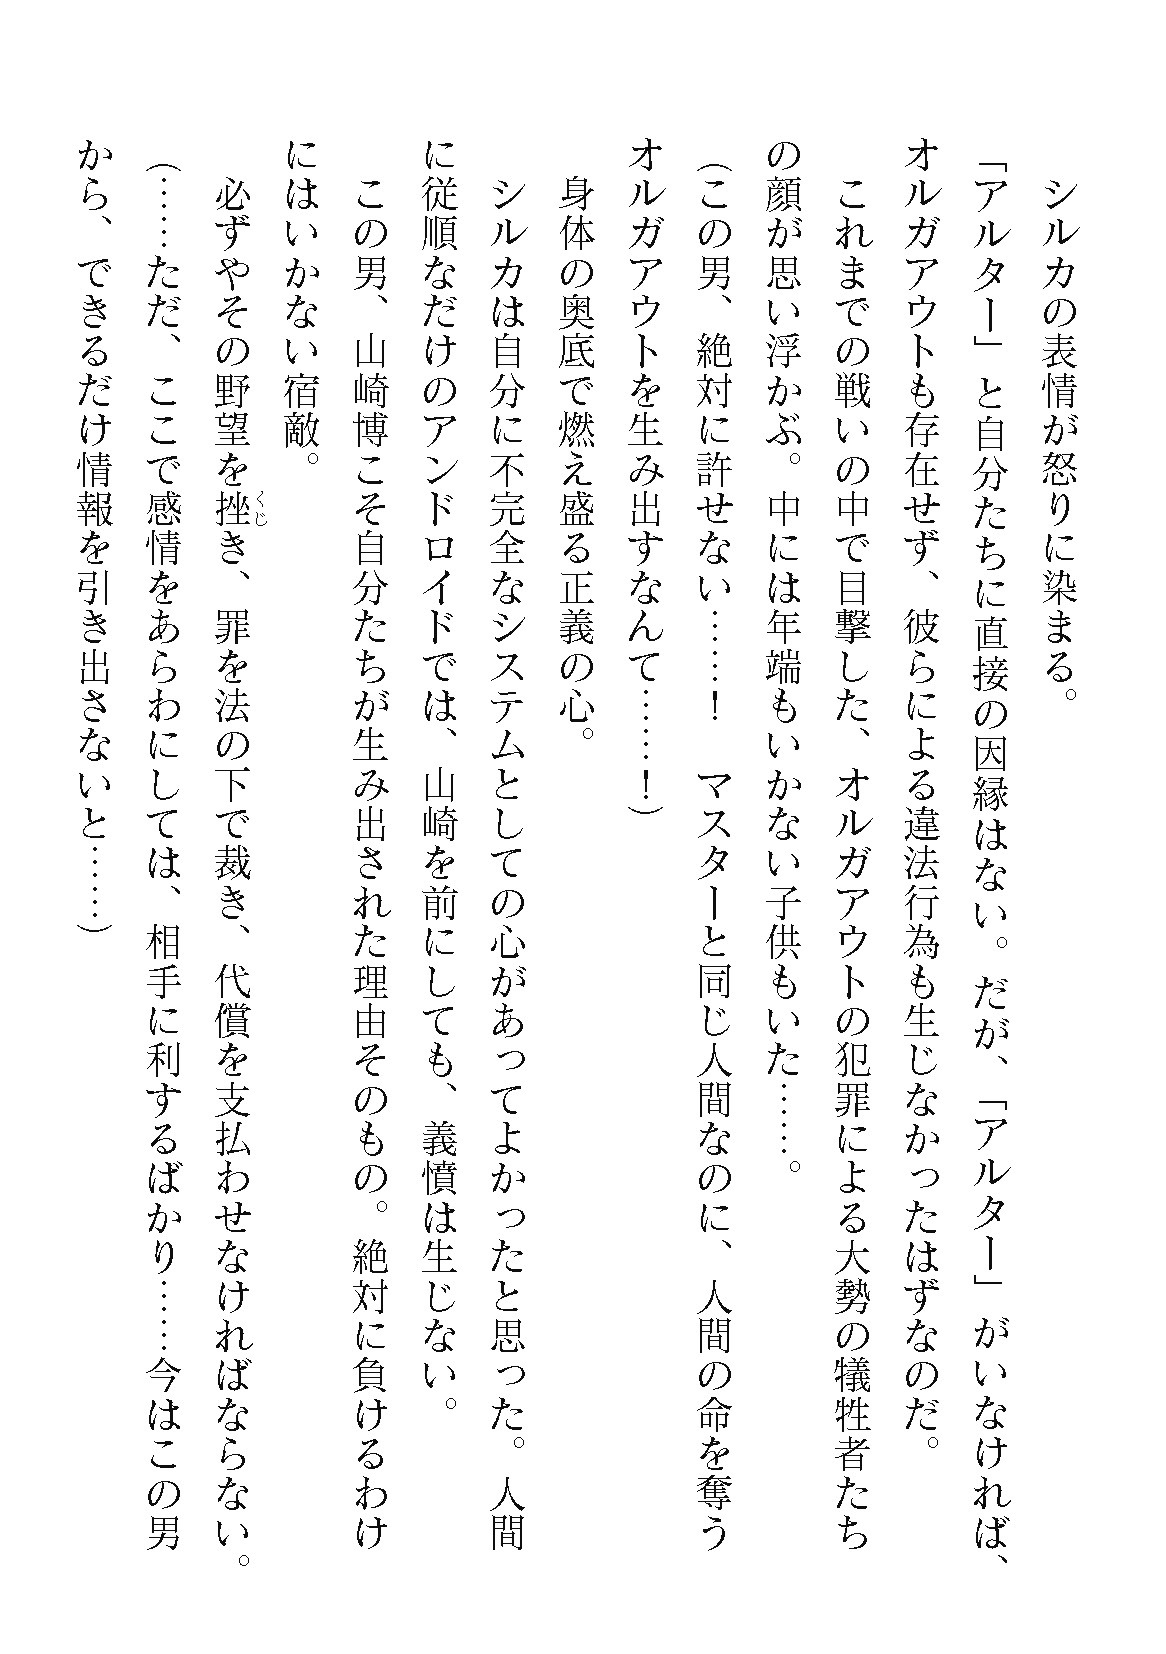 シルカの表情が怒りに染まる。
「アルター」と自分たちに直接の因縁はない。だが、「アルター」がいなければ、
オルガアウトも存在せず、彼らによる違法行為も生じなかったはずなのだ。
　これまでの戦いの中で目撃した、オルガアウトの犯罪による大勢の犠牲者たち
の顔が思い浮かぶ。中には年端もいかない子供もいた……。
（この男、絶対に許せない……！　マスターと同じ人間なのに、人間の命を奪う
オルガアウトを生み出すなんて……！）
　身体の奥底で燃え盛る正義の心。
　シルカは自分に不完全なシステムとしての心があってよかったと思った。人間
に従順なだけのアンドロイドでは、山崎を前にしても、義憤は生じない。
　この男、山崎博こそ自分たちが生み出された理由そのもの。絶対に負けるわけ
にはいかない宿敵。
　必ずやその野望を挫くじき、罪を法の下で裁き、代償を支払わせなければならない。
（……ただ、ここで感情をあらわにしては、相手に利するばかり……今はこの男
から、できるだけ情報を引き出さないと……）